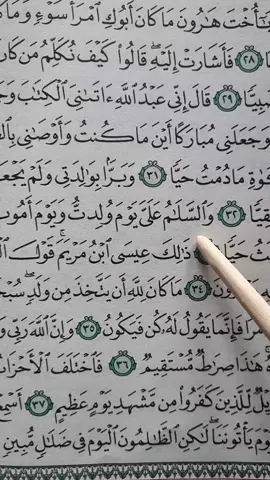 يَـٰٓأُخْتَ هَـٰرُونَ مَا كَانَ أَبُوكِ ٱمْرَأَ سَوْءٍ وَمَا كَا
٢٨ فَأَشَارَتْ إِلَيْهِ ۖ قَالُوا۟ كَيْفَ نُكَلِّمُ مَن كَانَ
بِيًّا ٢٩ قَالَ إِنِّى عَبْدُ ٱللَّهِ ءَاتَىٰنِىَ ٱلْكِتَـٰبَ وَجَعَـ
وَجَعَلَنِى مُبَارَكًا أَيْنَ مَا كُنتُ وَأَوْصَـٰنِى بِٱلـ
ـوٰةِ مَا دُمْتُ حَيًّا ٣١ وَبَرًّۢا بِوَٰلِدَتِى وَلَمْ يَجْعَـ
قِيًّا ٣٢ وَٱلسَّلَـٰمُ عَلَىَّ يَوْمَ وُلِدتُّ وَيَوْمَ أَمُوتُ
ـثُ حَيًّا ذَٰلِكَ عِيسَى ٱبْنُ مَرْيَمَ ۚ قَوْلَ ٱلْـ
ـرُونَ ٣٤ مَا كَانَ لِلَّهِ أَن يَتَّخِذَ مِن وَلَدٍ ۖ سُبْحَـ
أَمْرًا فَإِنَّمَا يَقُولُ لَهُۥ كُن فَيَكُونُ ٣٥ وَإِنَّ ٱللَّهَ رَبِّى وَ
هَـٰذَا صِرَٰطٌ مُّسْتَقِيمٌ ٣٦ فَٱخْتَلَفَ ٱلْأَحْزَابُ
ـيْلٌ لِّلَّذِينَ كَفَرُوا۟ مِن مَّشْهَدِ يَوْمٍ عَظِيمٍ ٣٧ أَسْمِعْ
ـوْمَ يَأْتُونَنَا ۖ لَـٰكِنِ ٱلظَّـٰلِمُونَ ٱلْيَوْمَ فِى ضَلَـٰلٍ مُّبِينٍ